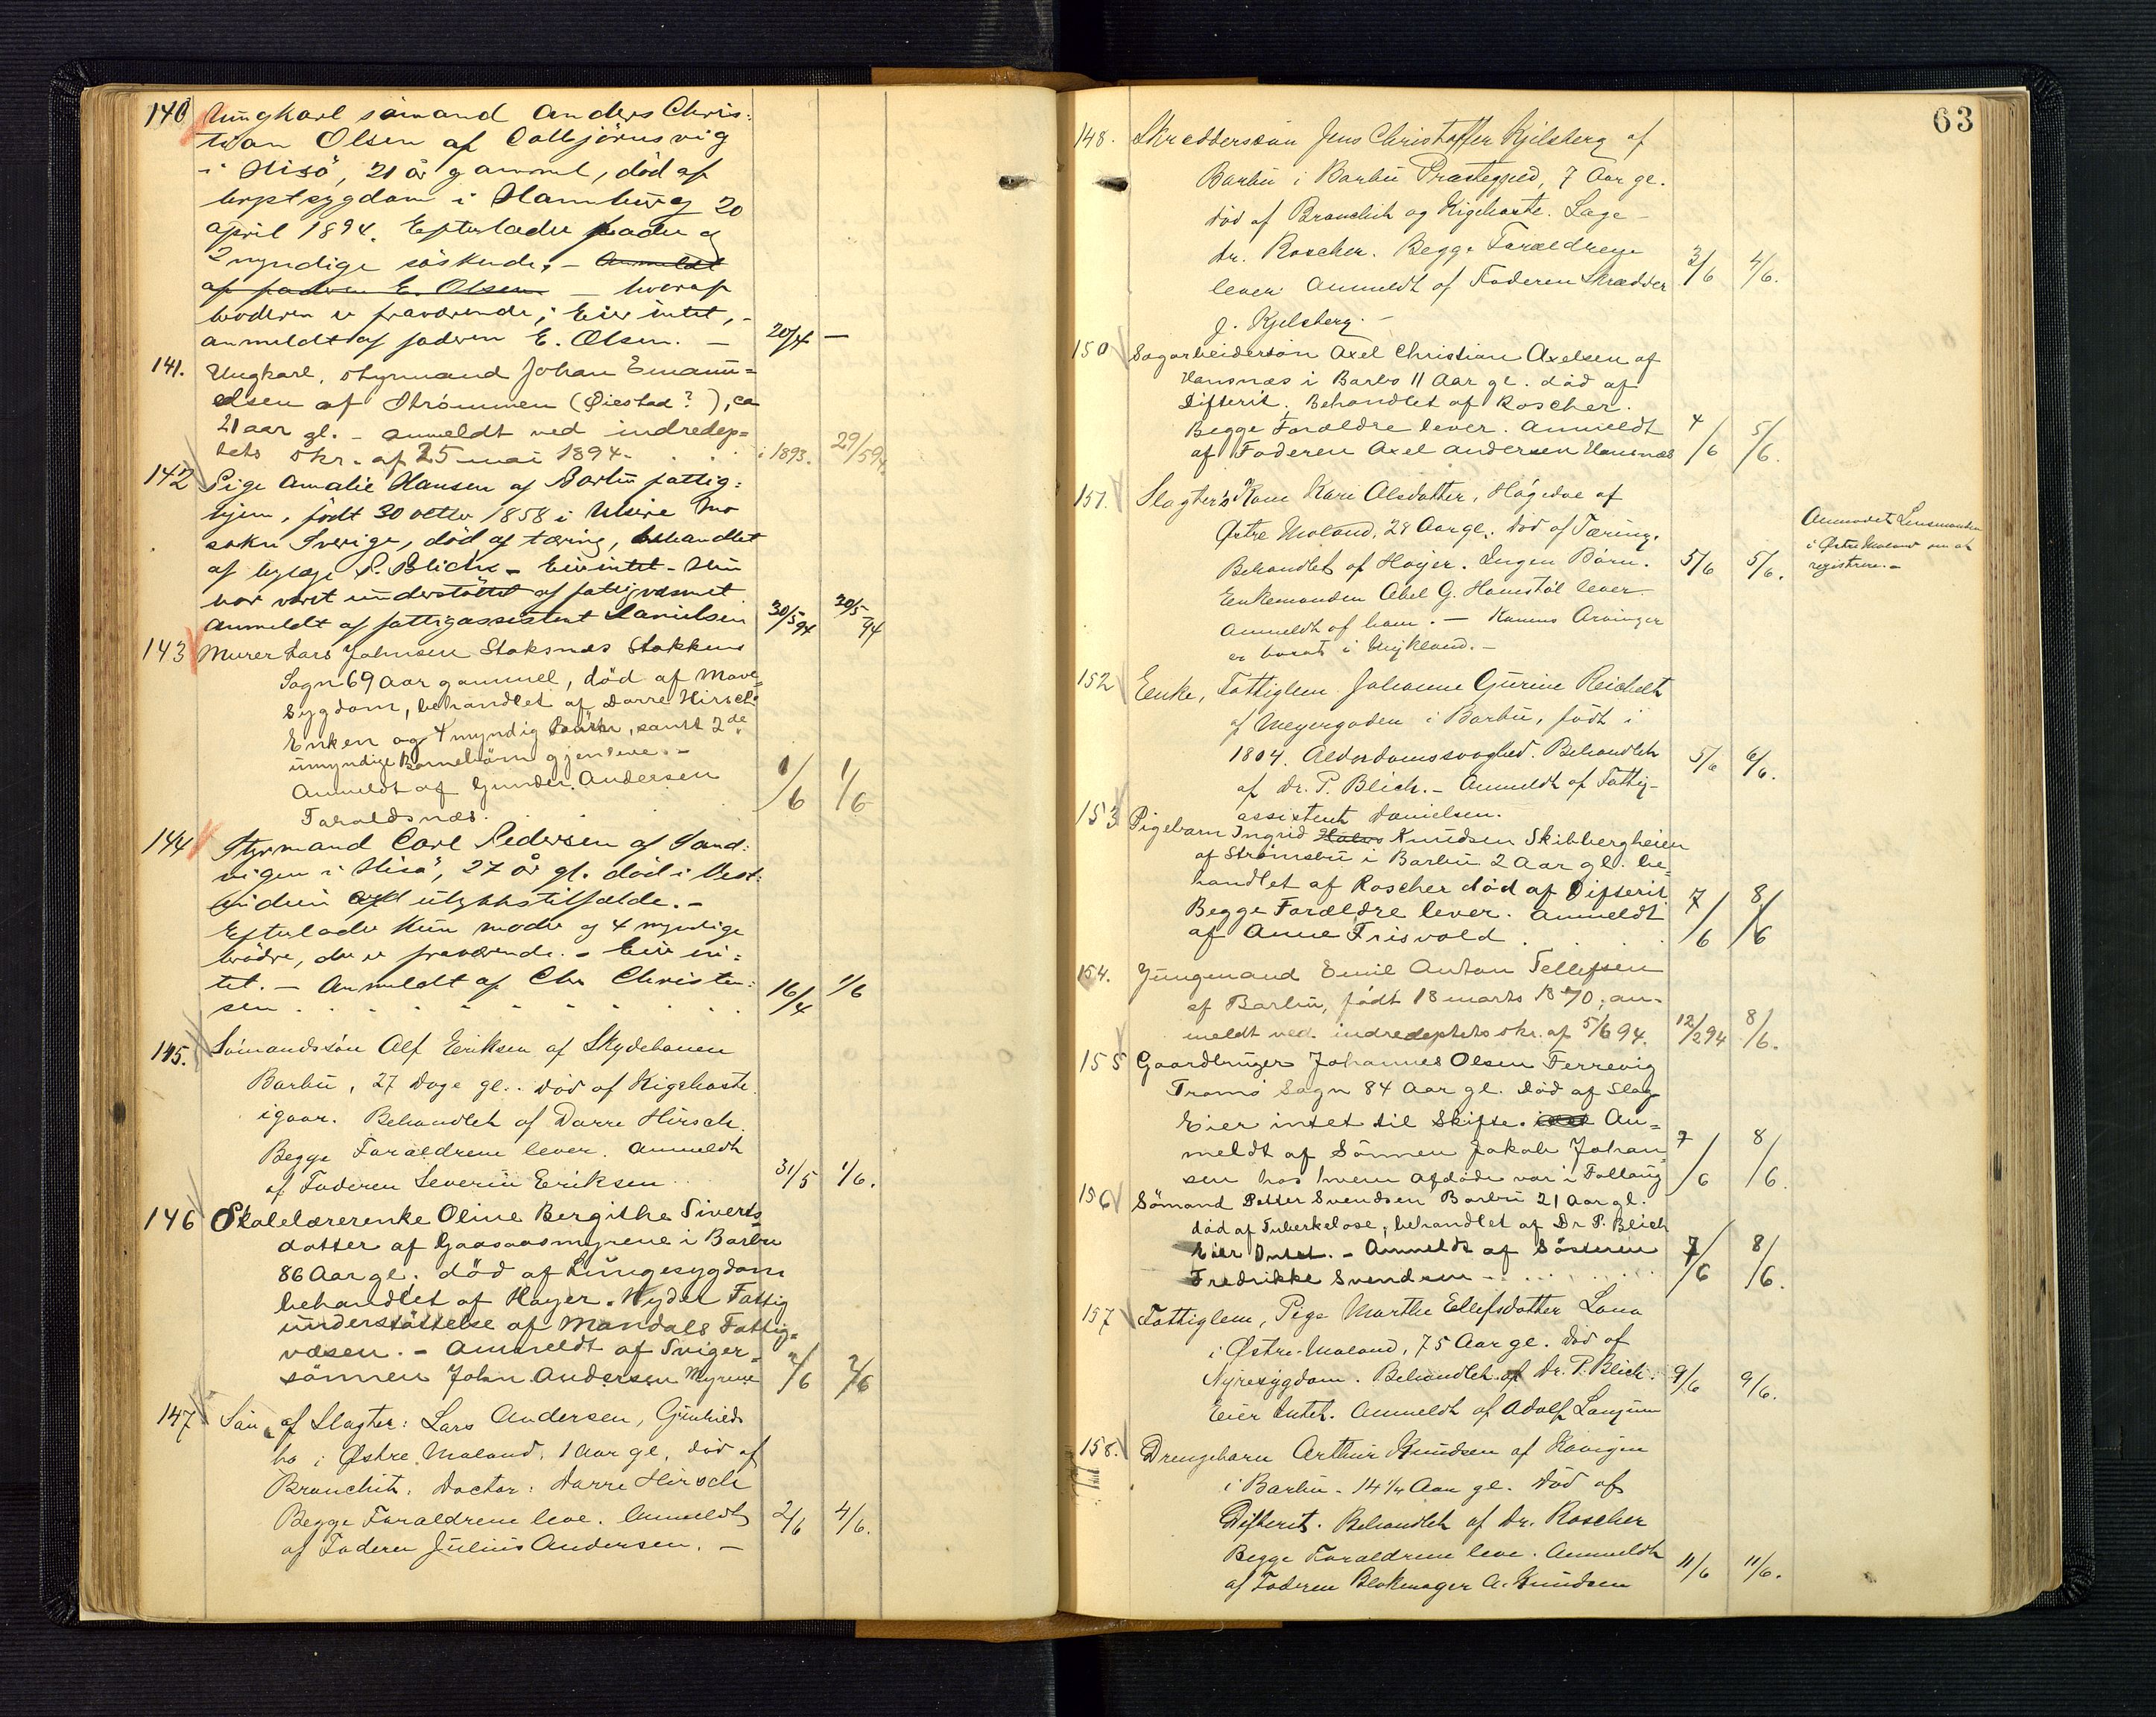 140 Ungkarl sömand Anders Chris:
tian Olsen af Colbjörnsvig
i Hisö, 21 år gammel, död af
brystsygdom i Hamburg 20
april 1894. Efterlader fader og
2 myndige söskende, – Anmeldt
af faderen E. Olsen – hvoraf
broderen er fraværende; Eier intet, –
anmeldt af faderen E. Olsen. – 20/4 –
141. Ungkarl, styrmand Johan Emanu=
elsen af Strömmen (Øiestad?), ca
21 aar gl. – anmeldt ved indredep=
tets skr. af 25 mai 1894. . . . i 1893. 29/5 94
142 Pige Amalie Hansen af Barbu fattig:
hjem, födt 30 octbr 1858 i Mo
sokn Sverige, död af tæring, behandlet
af lege P. Blich – Eier intet – Hun
har været understöttet af fattigvæsnet
Anmeldt af fattigassistent Danielsen 30/5 94 30/5 94
143 Murer Lars Johnsen Staksnæs Stokkens
Sogn 69 Aar gammel, död af Mave=
Sygdom, behandlet af Darre Hirsch
Enken og 4 myndig Börn, samt 2de
umyndige Barnebörn gjenleve. –
Anmeldt af Gunder Andersen
Taraldsnæs. 1/6 1/6
144 Styrmand Carl Pedersen af Sand:
vigen i Hisö, 27 år gl. död i Vest:
indien ulykkestilfælde. –
Efterlader kun moder og 4 myndige
brödre, der er fraværende. – Eier in:
tet. – Anmeldt af Chr Christen:
sen . . . . . . . 16/4 1/6
145. Sömandssön Alf Eriksen af Skydebanen
Barbu, 27 Dage gl. död af Kighoste
igaar. Behandlet af Darre Hirsch.
Begge Forældrene lever. Anmeldt
af Faderen Severin Eriksen . . 31/5 1/6.
146 Skolelærerenke Oline Bergithe Siverts=
datter af Gaasaasmyrene i Barbu
86 Aar gl; död af Lungesygdom
behandlet af Høyer. Nyder Fattig
understöttelse af Mandals Fattig=
væsen. – Anmeldt af Sviger=
sönnen John Andersen Myrene 2/6 2/6
147 Sön af Slagter: Lars Andersen,
bo i Østre Moland, 1 Aar gl, död af
Bronchit. Doctor: Darre Hirsch
Begge Forældrene leve. Anmeldt
af Faderen Julius Andersen. – 2/6 4/6.
63
148. Skræddersøn Jens Christoffer Kjelsberg af
Barbu i Barbu Præstegjeld, 7 Aar gl.
död af Bronchit og Kighoste. Læge –
dr. Roscher. Begge Forældrene
lever. Anmeldt af Faderen Skrædder 3/6 4/6.
J. Kjelsberg. –
150 Sagarbeidersön Axel Christian Axelsen af
Hansnæs i Barbo 11 Aar gl. död af
Difterit. Behandlet af Roscher.
Begge Forældre lever. Anmeldt
af Faderen Axel Andersen Hansnæs 4/6 5/6.
151. Slagter's Kone Kari Olsdatter, Högedal af
Østre Moland, 28 Aar gl. död af Tæring.
Behandlet af Høyer. Ingen Börn. 5/6 5/6.
Enkemanden Abel G. Hamstöl lever
Anmeldt af ham. – Konens Arvinger
er bosat i Mykland. –
Anmodet Lensmanden
i Østre Moland om at
registrere. –
152 Enke, Fattiglem Johanne Gurine Reichelt
af Meyergaden i Barbu, födt i
1804. Alderdomssvaghed. Behandlet 5/6 6/6.
af Dr. P. Blich. – Anmeldt af Fattig-
assistent Danielsen.
153 Pigebarn Ingrid Knudsen Skibbergheien
af Strömsbu i Barbu 2 Aar gl. be=
handlet af Roscher död af Difterit
Begge Forældre lever. Anmeldt
af Anne Frisvold . . . . 7/6 8/6
154. Jungmand Emil Anton Tellefsen
af Barbu, födt 18 marts 1870; an-
meldt ved. indredeptets skr. af 5/6 94. 12/2 94 8/6.
155 Gaardbruger Johannes Olsen Ferrevig
Tromö Sogn 84 Aar gl. död af Slag
Eier intet til Skifte. An=
meldt af Sönnen Jakob Johan=
sen hos hvem Afdöde var i Follaug 7/6 8/6.
156 Sömand Petter Svendsen Barbu 21 Aar gl.
död af Tuberkelose, behandlet af Dr P. Blich
Eier Intet. – Anmeldt af Sösteren
Fredrikke Svendsen – . . . . . 7/6 8/6.
157 Fattiglem, Pige Marthe Ellefsdatter Lona
i Østre-Moland, 75 Aar gl. död af
Nyresygdom. Behandlet af Dr. P. Blich. 9/6 9/6.
Eier Intet. Anmeldt af Adolf Langum
158. Drengebarn Arthur Knudsen af Kavigen
i Barbu – 14 1/4 Aar gl. död af
Difterit. Behandlet af Dr. Roscher
Begge Forældrene leve. Anmeldt
af Faderen Blokmager A. Knudsen 11/6 11/6.